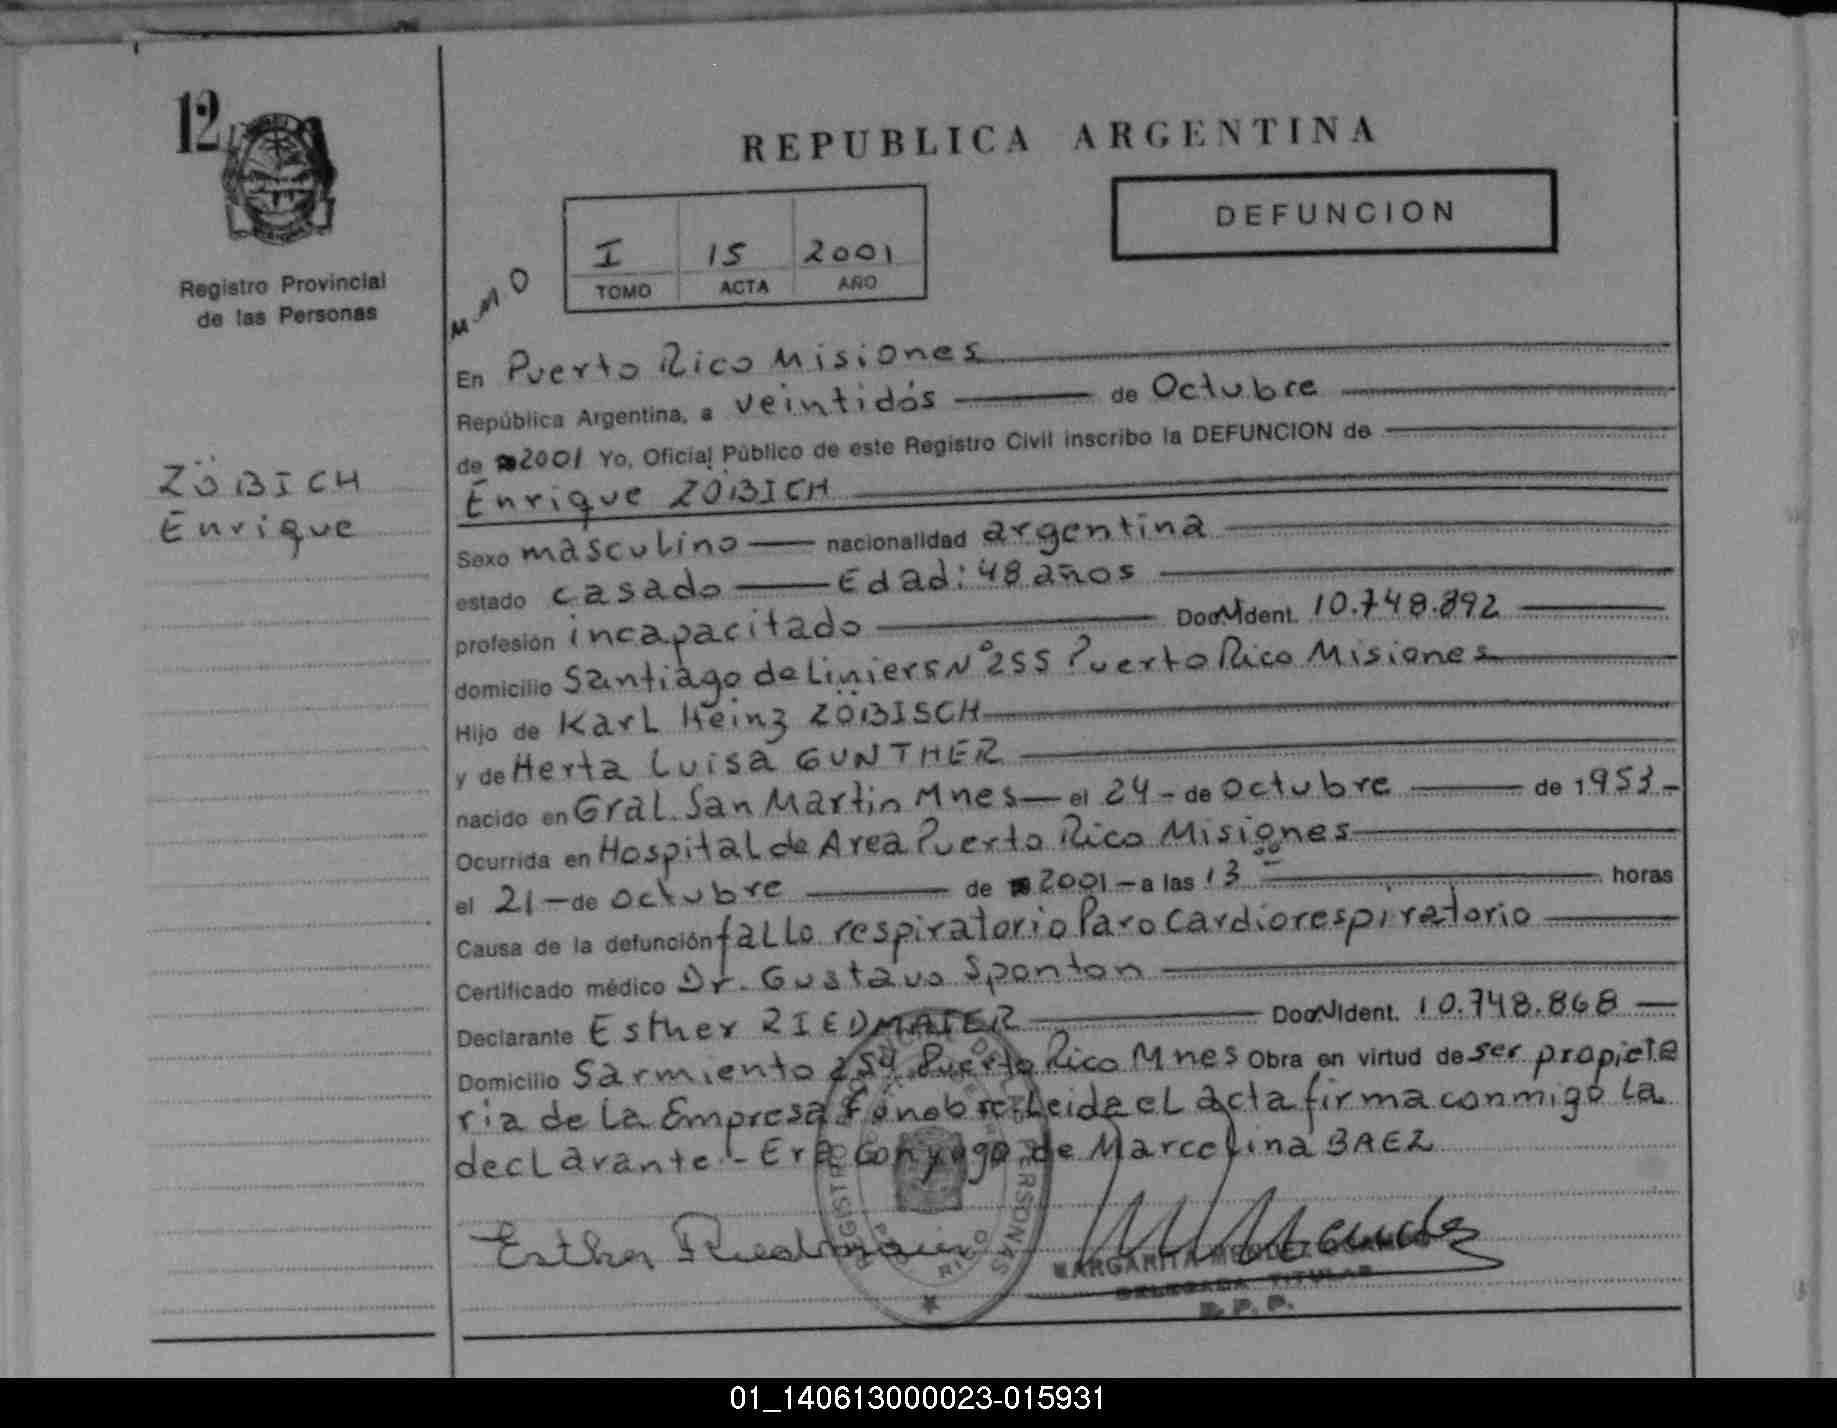 12
Registro Provincial
de las Personas
ZÖBICH
Enrique
REPUBLICA ARGENTINA
DEFUNCION
I 15 2001
TOMO ACTA AÑO
M.M.O
En Puerto Rico Misiones
República Argentina, a veintidós de Octubre
de 2001 Yo, Oficial Público de este Registro Civil inscribo la DEFUNCION de
Enrique ZÖBICH
Sexo masculino nacionalidad argentina
estado casado Edad: 48 años
profesión incapacitado Doc. Ident. 10.748.892
domicilio Santiago de Liniers Nº 255 Puerto Rico Misiones
Hijo de Karl Heinz ZÖBISCH
y de Herta Luisa GUNTHER
nacido en Gral. San Martin Mnes — el 24 - de octubre de 1953 -
Ocurrida en Hospital de Area Puerto Rico Misiones
el 21 - de octubre de 2001 - a las 13 00 horas
Causa de la defunción fallo respiratorio Paro Cardiorespiratorio
Certificado médico Dr. Gustavo Sponton
Declarante Esther RIEDMAIER Doc. Ident. 10.748.868
Domicilio Sarmiento 254 Puerto Rico Mnes Obra en virtud de ser propieta
ria de la Empresa Fúnebre. Leida el acta firma conmigo la
declarante.- Era conyugo de Marcelina BAEZ
Esther Riedmaier
MARGARITA
DELEGADA TITULAR
R. P. P.
01_140613000023-015931